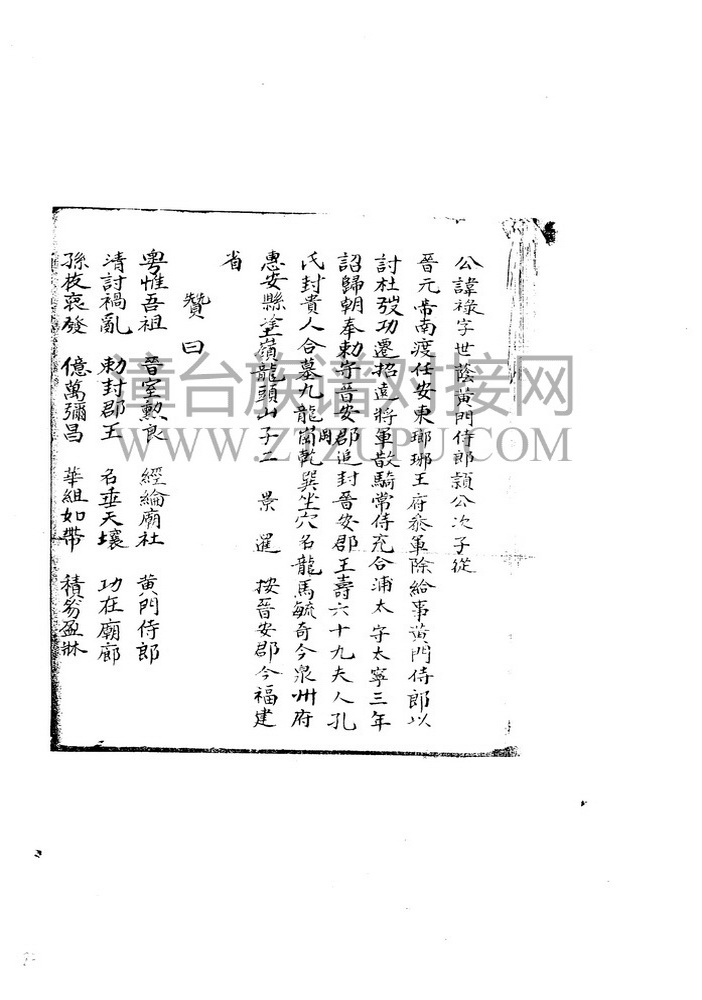 公諱祿字世蔭黃門侍郎潁公次子從
晉元帝南渡任安東瑯琊王府叅軍除給事黃門侍郎以
討杜弢功遷招遠將軍散騎常侍充合浦太守太寧三年
詔歸朝奉勅守晉安郡追封晉安郡王壽六十九夫人孔
氏封貴人合墓九龍崗乾巽坐穴名龍馬毓奇今泉州府
惠安縣塗嶺龍頭山子二 景 暹 按晉安郡今福建
省
贊曰
粵惟吾祖 晉室勲良 經綸廟社 黃門侍郎
清討禍亂 勅封郡王 名垂天壤 功在廟廊
孫枝裒發 億萬彌昌 華組如帶 積笏盈牀
漳台族谱对接网
WWW.ZTZUPU.COM